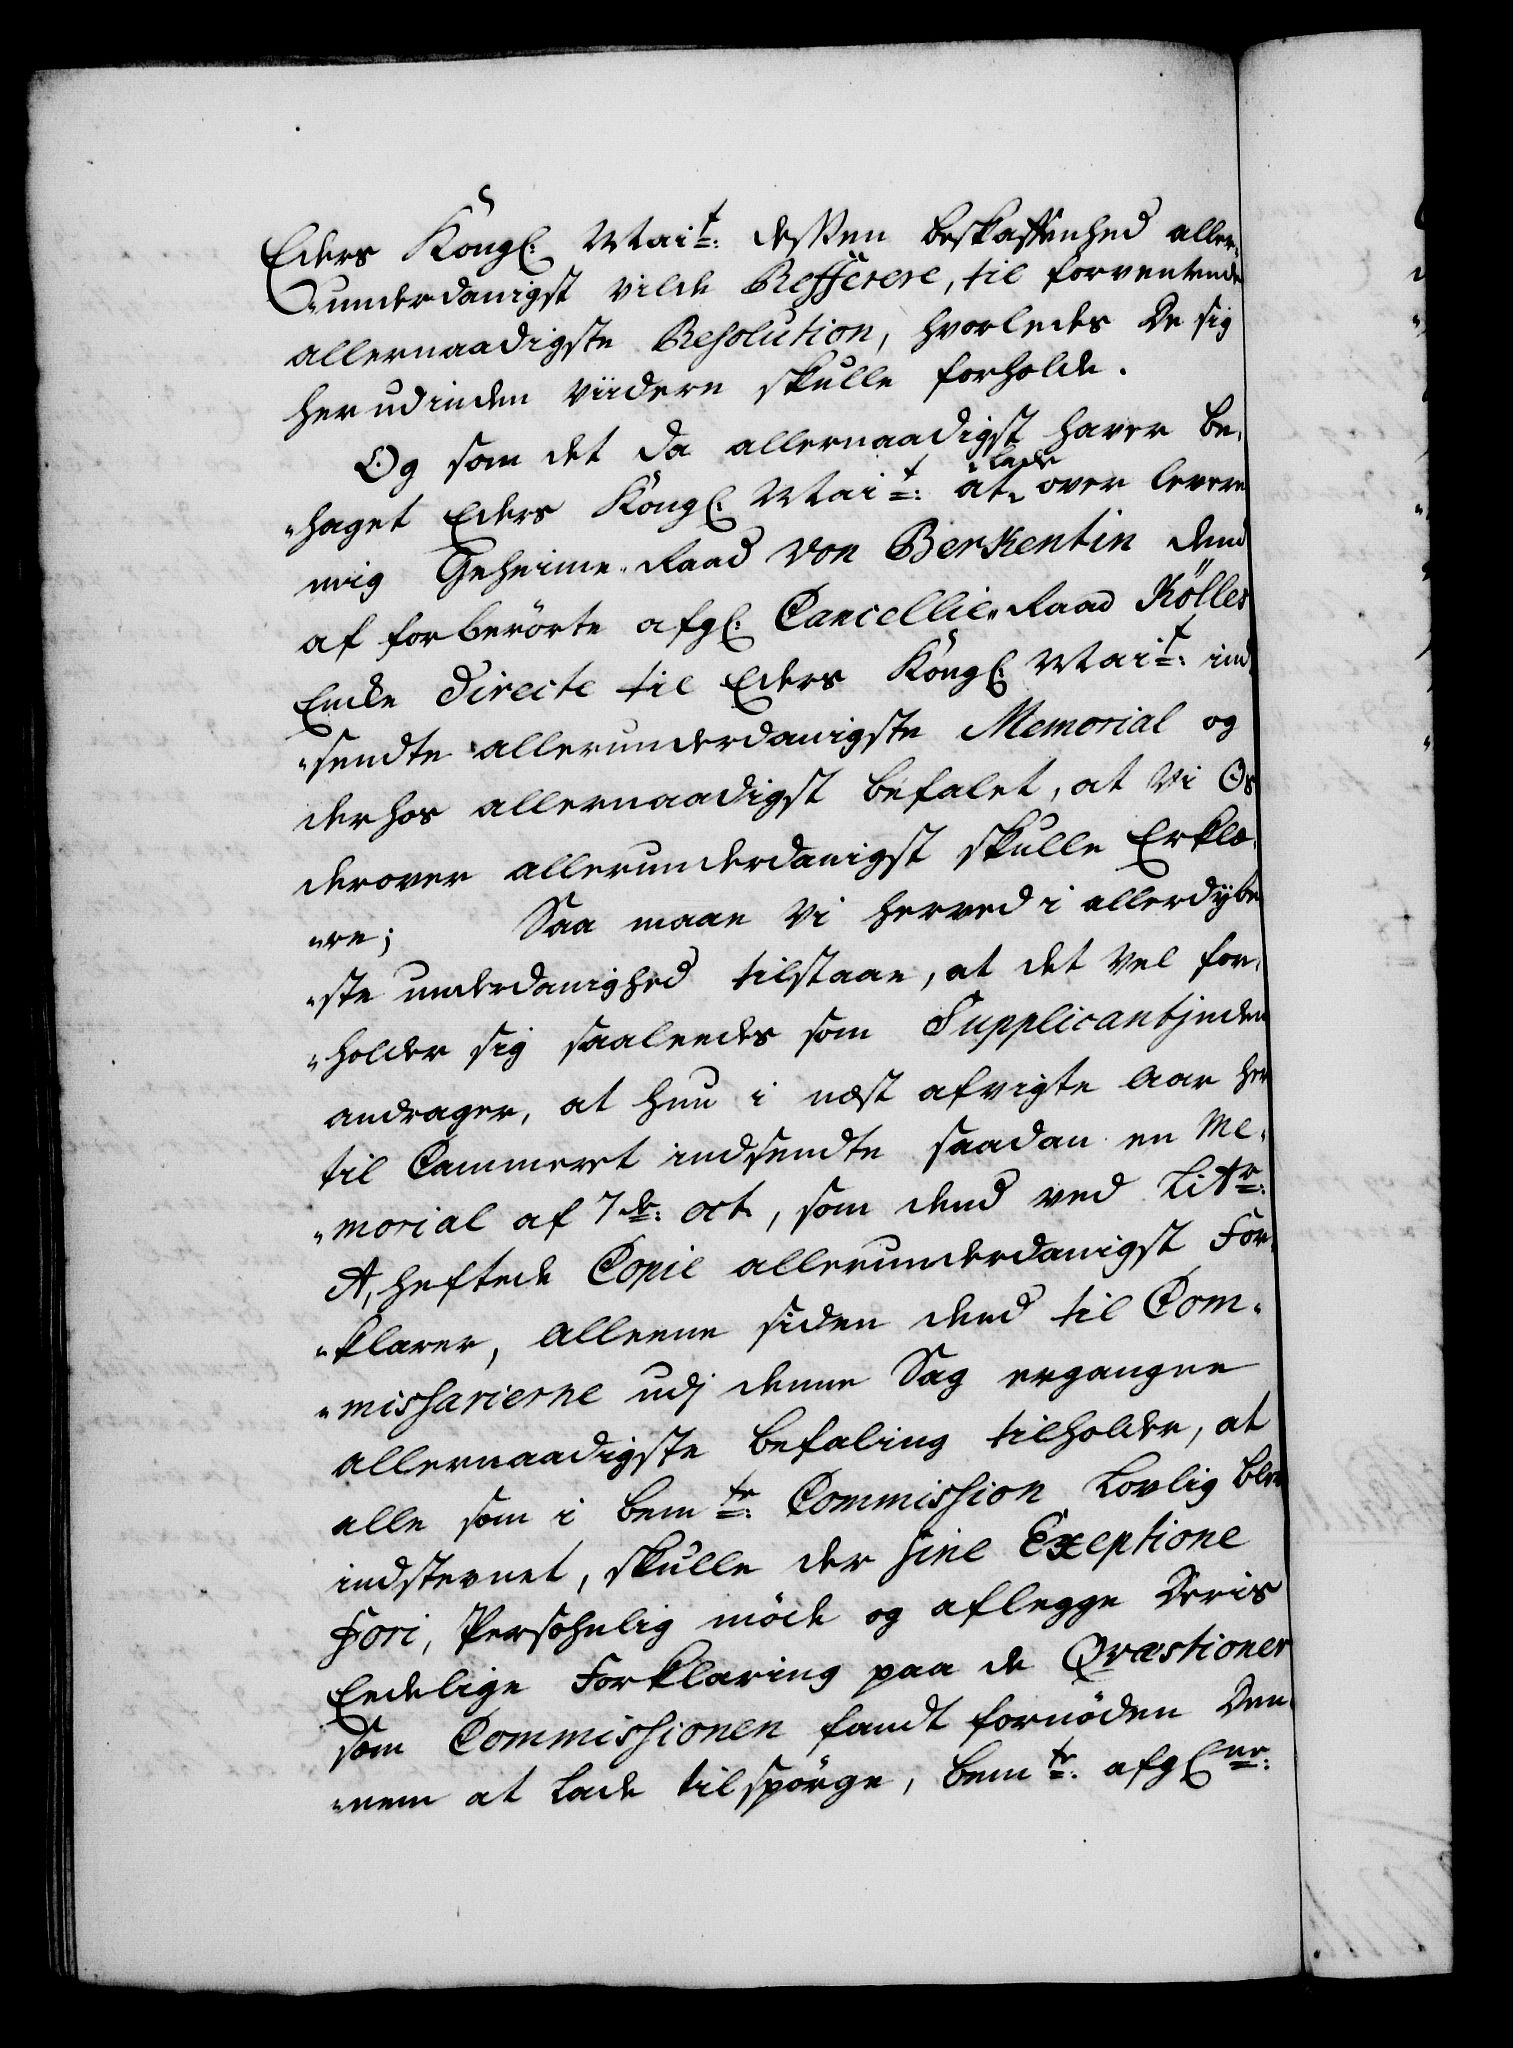 Eders Kongl: Mait: dessen beskaffenhed aller-
"underdanigst vilde Refferere, til forventende
allernaadigste Resolution, hvorledes De sig
herudinden viidere skulle forholde.
Og som det da allernaadigst haver be-
"haget Eders Kongl: Mait: at lade over levere
mig Geheime-Raad von Berkentin dend
af forberörte afgl: Cancellie-Raad Kölles
Encke directe til Eders Kongl: Mait: ind
"sendte allerunderdanigste Memorial og
derhos allernaadigst befalet, at Vi Os
derover allerunderdanigst skulle Erklæ-
"re; Saa maae Vi herved i allerdybe
"ste underdanighed tilstaae, at det vel for-
"holder sig saaleedes som Supplicantjnden
andrager, at hun i næst afvigte Aar her
til Cammeret indsendte saadan en Me-
"morial af 7de: oct:, som dend ved Litr:
A, heftede Copie allerunderdanigst For-
"klarer, alleene siden dend til Com-
"missarierne udj denne Sag ergangne
allernaadigste befaling tilholder, at
alle som i bemte: Commission Lovlig blev
indstevnet, skulle der sine Exeptione
Fori, Persohnlig möde og aflegge Deris
Eedelige Forklaring paa de Qvæstioner
som Commissionen fandt fornöden Den-
"nem at Lade tilspörge, bemte: afgl